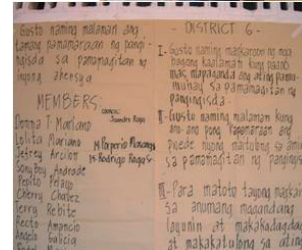 Gusto naming malaman ang
tamang pamamaraan ng pangi-
ngisda sa pamamagitan ng
inyong ahensya
MEMBERS:
Donna T Mariano
Lolita Mariano
Jefrey Arcilon
Sonyboy Andrade
Pepito Pelayo
Cherry Chavez
Terry Rebite
Recto Amancio
Angelo Galicia
Sandro Raga
14 Porperio
15 Rodrigo Raga
DISTRICT 6 -
I- Gusto naming magkaroon ng mga
bagong kaalaman kung paano
mas mapaganda ang ating pamu-
muhay sa pamamagitan ng
pangingisda.
II- Gusto naming malaman kung
ano-ano pang Pamamaraan ang
pwede nyong maitulong sa amin
sa pamamagitan ng pangingis
III- Para matoto tayong magkar
sa anumang magandang
layunin at makakadagdag
at makakatulong sa ating